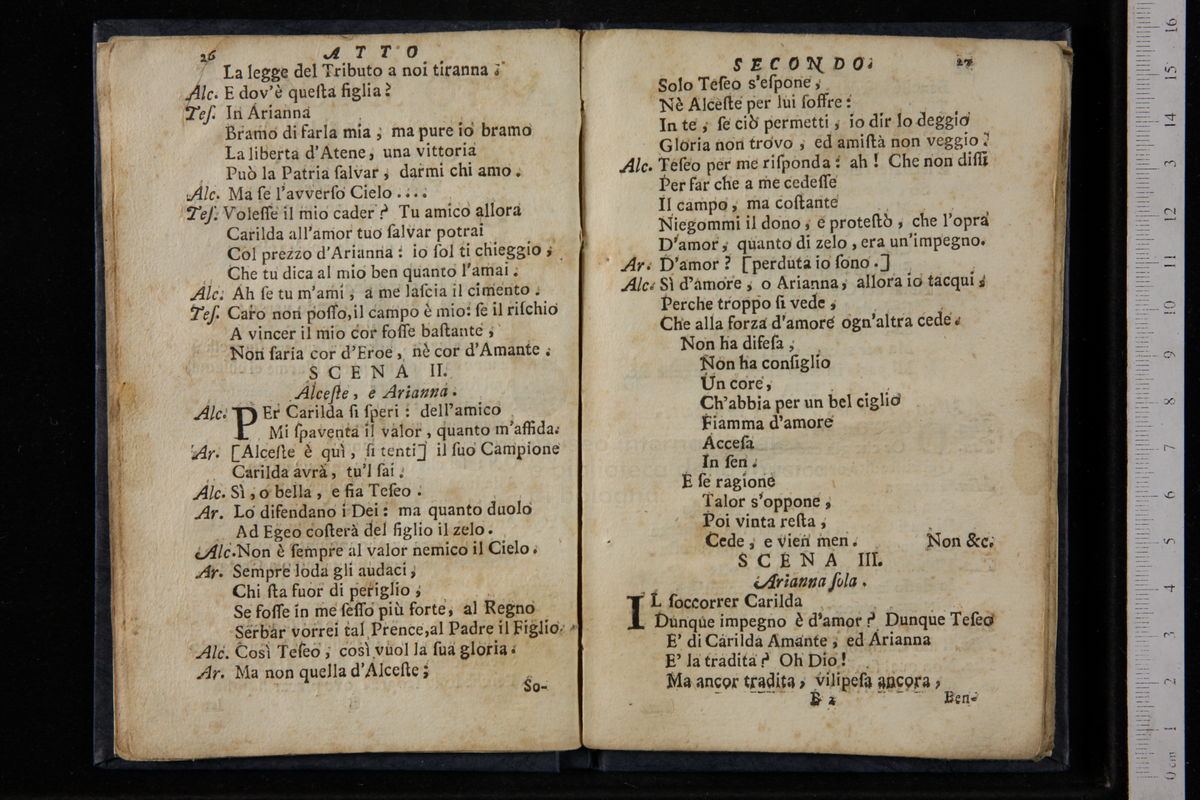 26 ATTO
La legge del Tributo a noi tiranna.
Alc. E dov'è queſta figlia?
Teſ. In Arianna
Bramo di farla mia, ma pure io bramo
La liberta d'Atene, una vittoria
Può la Patria ſalvar, darmi chi amo.
Alc. Ma ſe l'avverſo Cielo....
Teſ. Voleſſe il mio cader? Tu amico allora
Carilda all'amor tuo ſalvar potrai
Col prezzo d'Arianna: io ſol ti chieggio,
Che tu dica al mio ben quanto l'amai.
Alc. Ah ſe tu m'ami, a me laſcia il cimento.
Teſ. Caro non poſſo, il campo è mio: ſe il riſchio
A vincer il mio cor foſſe baſtante,
Non ſaria cor d'Eroe, nè cor d'Amante.
SCENA II.
Alceſte, e Arianna.
Alc. PEr Carilda ſi ſperi: dell'amico
Mi ſpaventa il valor, quanto m'affida.
Ar. [Alceſte è quì, ſi tenti] il ſuo Campione
Carilda avrà, tu'l ſai.
Alc. Sì, o bella, e fia Teſeo.
Ar. Lo difendano i Dei: ma quanto duolo
Ad Egeo coſterà del figlio il zelo.
Alc. Non è ſempre al valor nemico il Cielo.
Ar. Sempre loda gli audaci,
Chi ſta fuor di periglio,
Se foſſe in me ſeſſo più forte, al Regno
Serbar vorrei tal Prence, al Padre il Figlio.
Alc. Così Teſeo, così vuol la ſua gloria.
Ar. Ma non quella d'Alceſte;
So-
SECONDO. 27
Solo Teſeo s'eſpone,
Nè Alceſte per lui ſoffre:
In te, ſe ciò permetti, io dir lo deggio
Gloria non trovo, ed amiſtà non veggio.
Alc. Teſeo per me riſponda: ah! Che non diſſi
Per far che a me cedeſſe
Il campo, ma coſtante
Niegommi il dono, e proteſtò, che l'opra
D'amor, quanto di zelo, era un'impegno.
Ar. D'amor? [perduta io ſono.]
Alc. Sì d'amore, o Arianna, allora io tacqui,
Perche troppo ſi vede,
Che alla forza d'amore ogn'altra cede.
Non ha difeſa,
Non ha conſiglio
Un core,
Ch'abbia per un bel ciglio
Fiamma d'amore
Acceſa
In ſen.
E ſe ragione
Talor s'oppone,
Poi vinta reſta,
Cede, e vien men. Non &c.
SCENA III.
Arianna ſola.
IL ſoccorrer Carilda
Dunque impegno è d'amor? Dunque Teſeo
E' di Carilda Amante, ed Arianna
E' la tradita? Oh Dio!
Ma ancor tradita, vilipeſa ancora,
B 2 Ben-